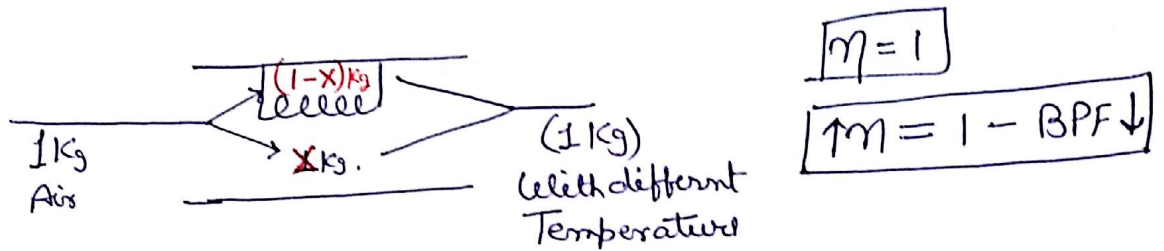 (1-x)Kg
1Kg
Air
x Kg.
(1Kg)
With differnt
Temperature
η = 1
↑η = 1 - BPF↓